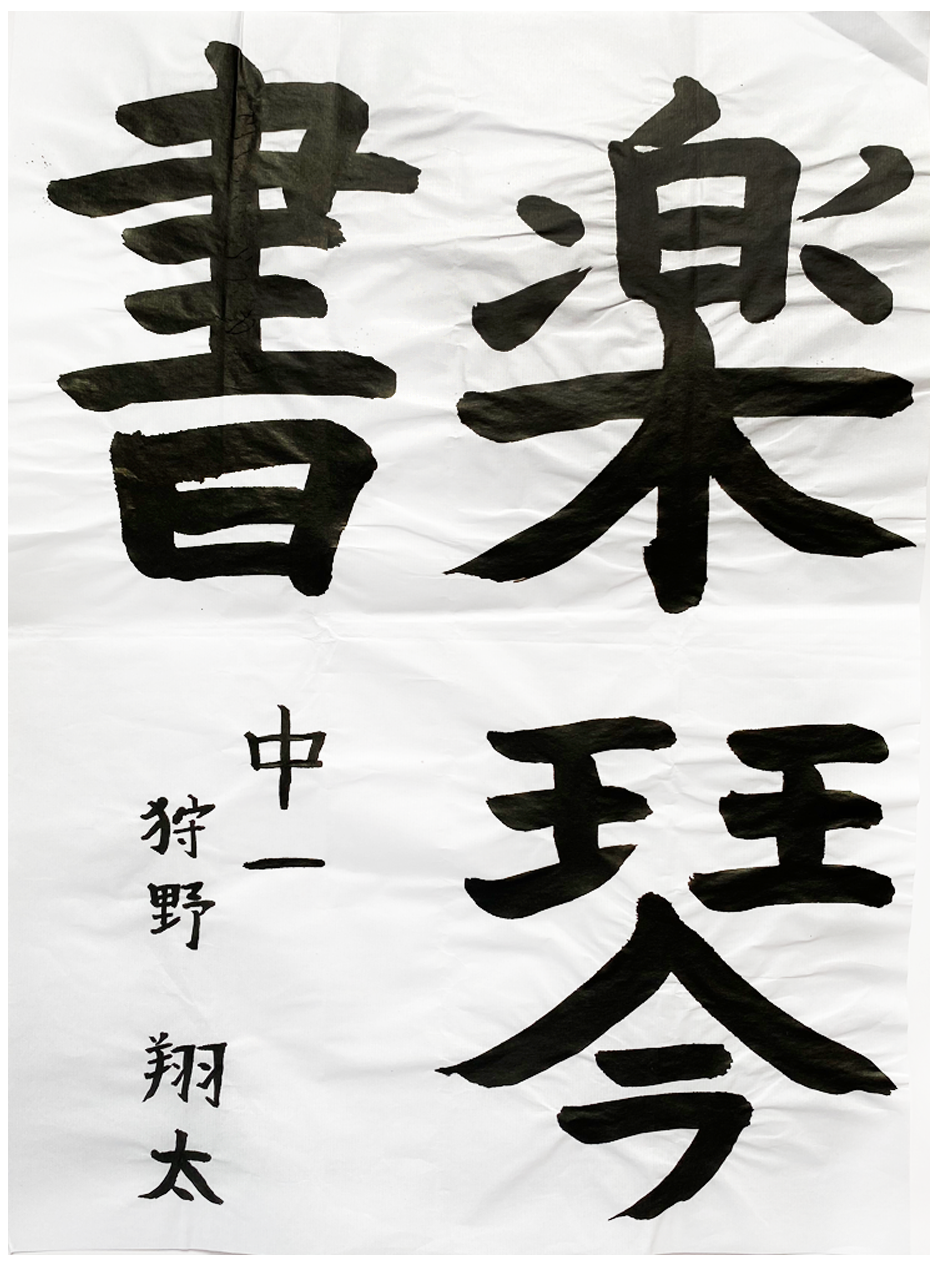 楽琴
書
中一
狩野 翔太